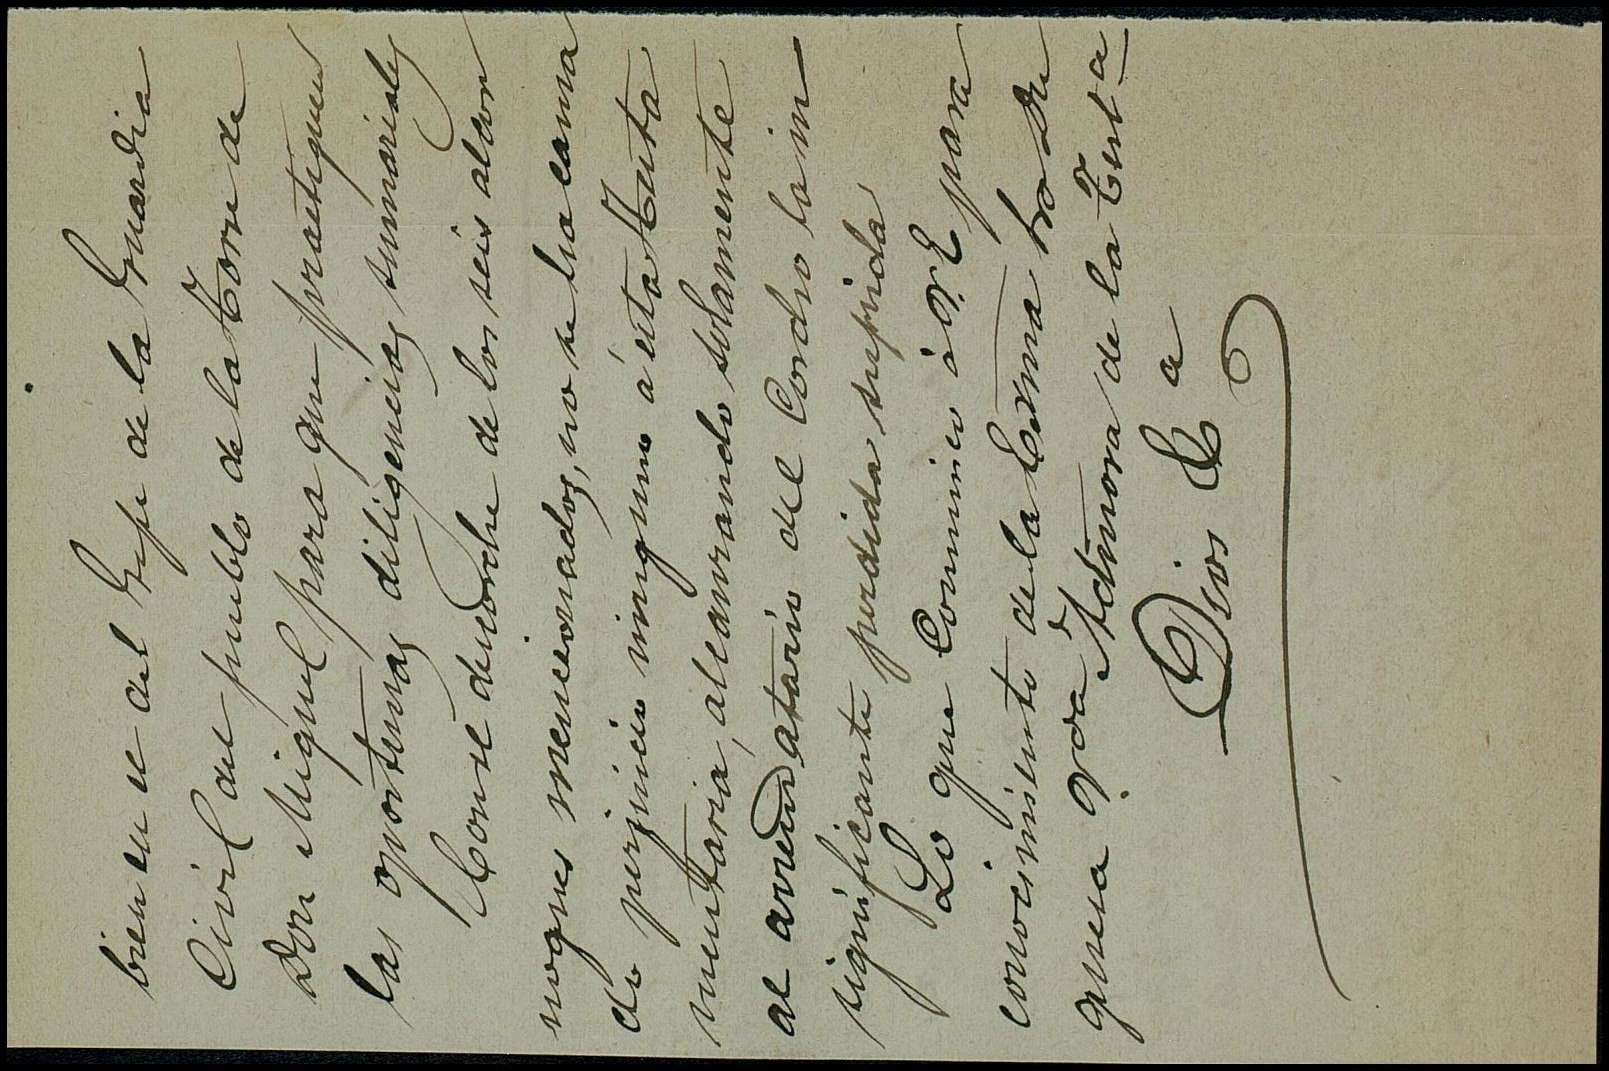 bien en el del Gefe de la Guardia
Civil del pueblo de la Torre de
Don Miguel para que practiquen
las oportunas diligencias sumariales
Con el desmoche de los seis alcor
noques mencionados, no se ha causa
do perjuicio ninguno á esta Testa
mentaria, alcanzando solamente
al arrendatario del Corcho la in
significante perdida sufrida
Lo que Comunico á V. E para
conocimiento de la Exma Sra Du
quesa Vda Admora de la Testa
Dios G a